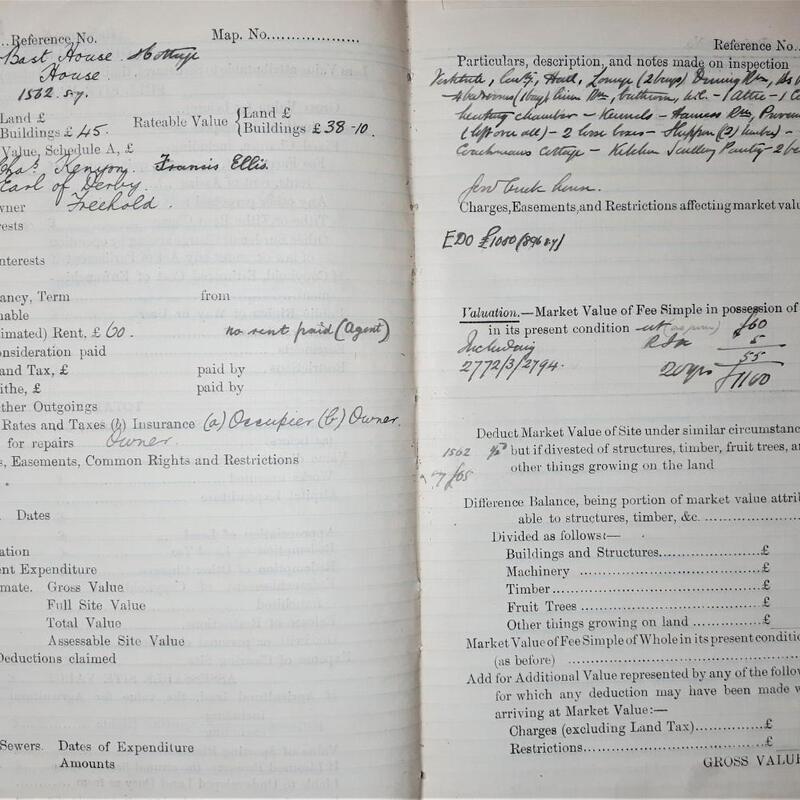 Reference No. Map. No.
Bast House Cottage
House.
1562. s.y.
Land £
Buildings £ 45. Rateable Value { Land £
Buildings £ 38-10.
Value, Schedule A, £
Chas. Kenyon. Francis Ellis.
Earl of Derby.
wner Freehold.
rests
nterests
ancy, Term from
nable
imated) Rent, £ 60. no rent paid (Agent)
onsideration paid
and Tax, £ paid by
ithe, £ paid by
ther Outgoings
Rates and Taxes (b) Insurance (a) Occupier (b) Owner.
for repairs Owner.
s, Easements, Common Rights and Restrictions
. Dates
ation
ent Expenditure
mate. Gross Value
Full Site Value
Total Value
Assessable Site Value
Deductions claimed
Sewers. Dates of Expenditure
Amounts
Reference No.
Particulars, description, and notes made on inspection
Vestibule, Hall, Lounge (2 bays) Dining Rm,
4 bedrooms (1 bay) Linen Rm, bathroom, w.c. - 1 Attic - 1
heating chamber - Kennels - Harness Rm,
(loft over all) - 2 loose boxes - Shippon (2)
Coachmans Cottage - Kitchen Scullery Pantry - 2
Charges, Easements, and Restrictions affecting market valu
EDO £1050 (896 s.y)
Valuation.—Market Value of Fee Simple in possession of
in its present condition £60
Including 5
2772/3/2794. 55
20 yrs £1100
Deduct Market Value of Site under similar circumstanc
1562 but if divested of structures, timber, fruit trees, an
£65 other things growing on the land
Difference Balance, being portion of market value attrib
able to structures, timber, &c.
Divided as follows:—
Buildings and Structures £
Machinery £
Timber £
Fruit Trees £
Other things growing on land £
Market Value of Fee Simple of Whole in its present conditio
(as before)
Add for Additional Value represented by any of the follow
for which any deduction may have been made w
arriving at Market Value:—
Charges (excluding Land Tax) £
Restrictions £
GROSS VALUE